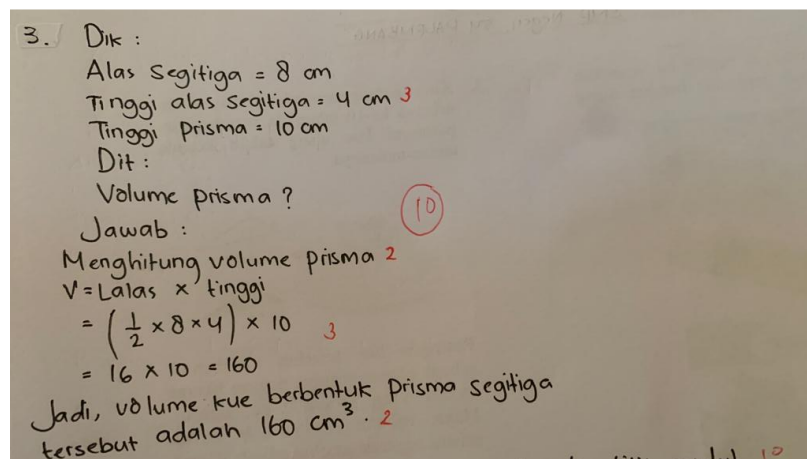 3. Dik :
Alas segitiga = 8 cm
Tinggi alas segitiga = 4 cm 3
Tinggi prisma = 10 cm
Dit :
Volume prisma ?
10
Jawab :
Menghitung volume prisma 2
V = Lalas x tinggi
= (1/2 x 8 x 4) x 10 3
= 16 x 10 = 160
Jadi, volume kue berbentuk prisma segitiga
tersebut adalah 160 cm³. 2
10